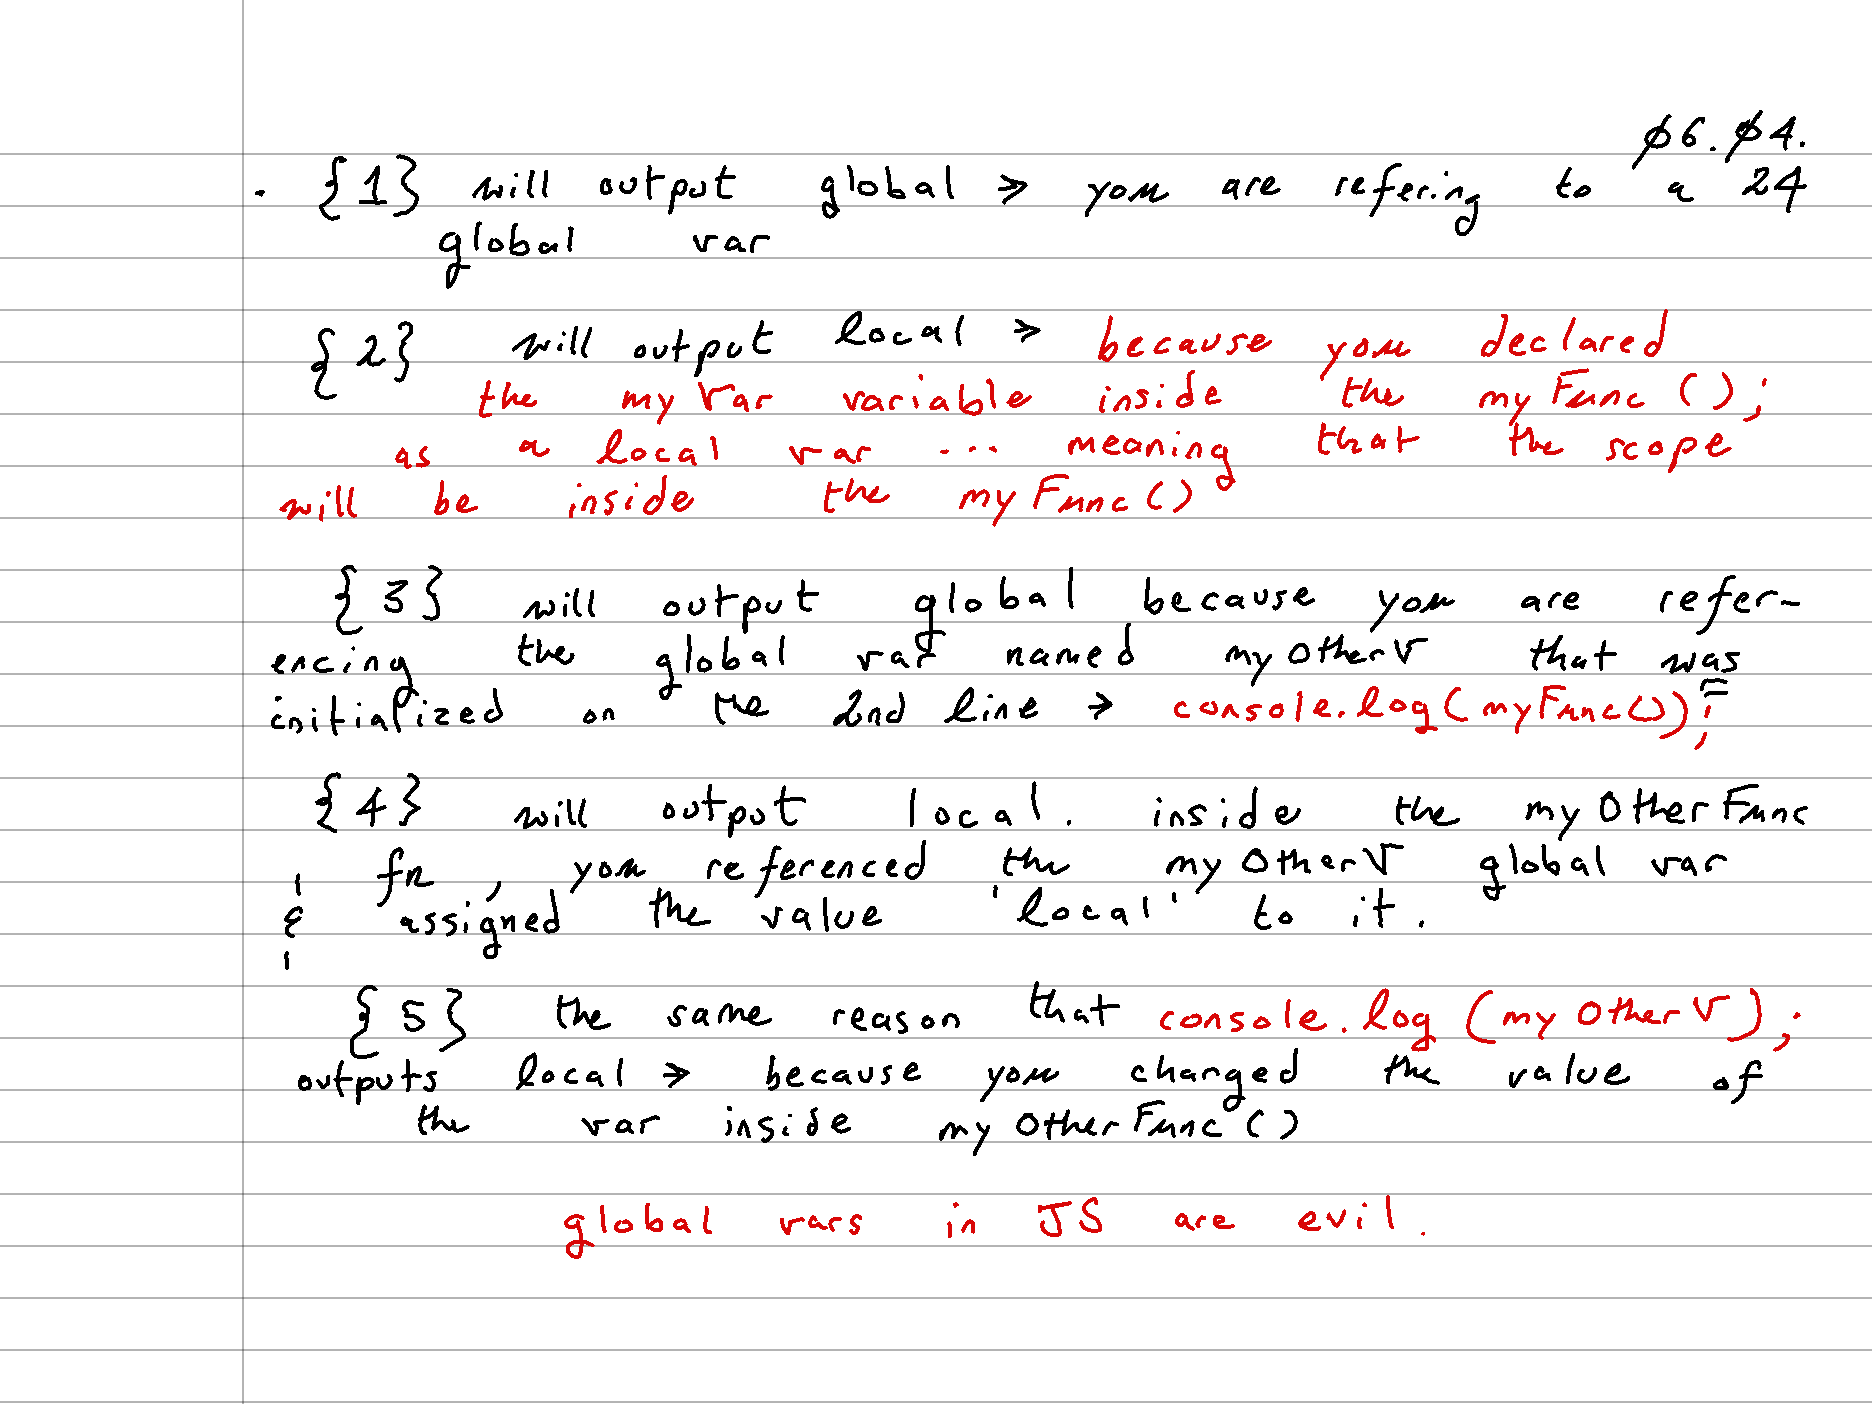 ø6.ø4.
• {1} will output global → you are refering to a 24
global var
{2} will output local → because you declared
the myVar variable inside the myFunc();
as a local var ... meaning that the scope
will be inside the myFunc()
{3} will output global because you are refer-
encing the global var named myOtherV that was
initialized on the 2nd line → console.log(myFunc());
{4} will output local. inside the myOtherFunc
fn, you referenced the myOtherV global var
& assigned the value 'local' to it.
{5} the same reason that console.log(myOtherV);
outputs local → because you changed the value of
the var inside myOtherFunc()
global vars in JS are evil.